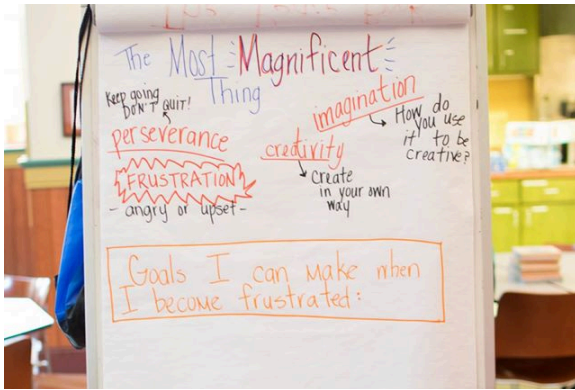 The Most Magnificent
Thing
Keep going
DON'T QUIT!
perseverance
FRUSTRATION
- angry or upset -
creativity
create
in your own
way
imagination
How do
you use
it to be
creative?
Goals I can make when
I become frustrated: